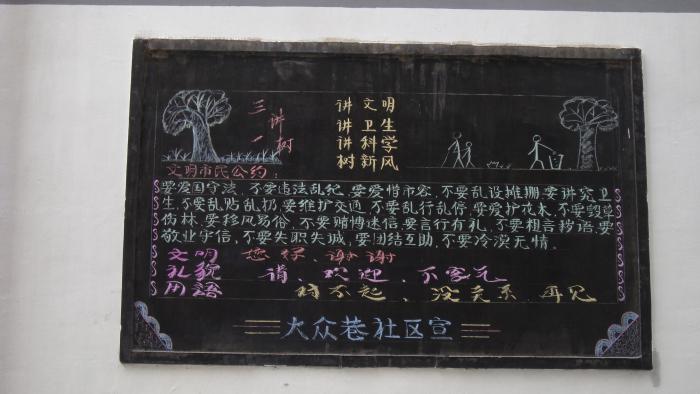 三讲
一树
讲文明
讲卫生
讲科学
树新风
文明市民公约:
要爱国守法,不要违法乱纪,要爱惜市容,不要乱设摊棚要讲究卫
生,不要乱贴乱扔,要维护交通,不要乱行乱停,要爱护花木,不要毁草
伤林,要移风易俗,不要赌博迷信,要言行有礼,不要粗言秽语,要
敬业守信,不要失职失诚,要团结互助,不要冷漠无情。
文明 您好、谢谢
礼貌 请、欢迎、不客气
用語 对不起、没关系、再见
大众巷社区宣